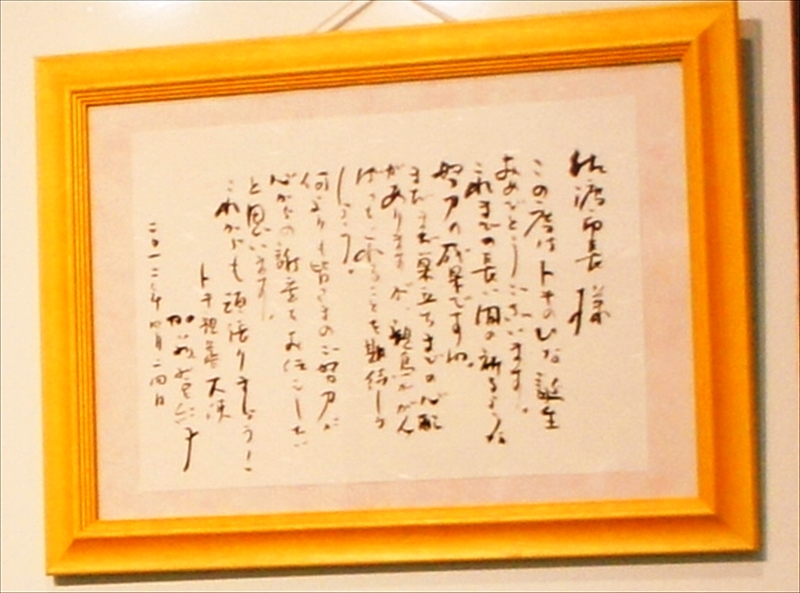 佐渡市長様
この度はトキのひな誕生
おめでとうございます。
これまでの長い間の祈るような
努力の成果ですね。
まだまだ巣立ちまでの心配
がありますが、親鳥ががん
ばってくれることを期待しま
しょう。
何よりも皆さまのご努力に
心からの謝意をお伝えしたい
と思います。
これからも頑張りましょう!
トキ親善大使
加藤登紀子
二〇一二年四月二四日